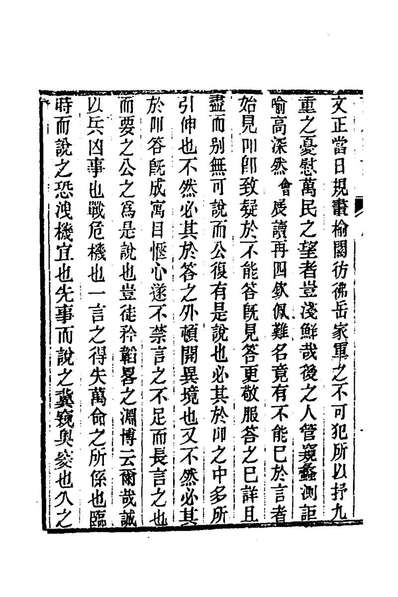 文正當日規畫榆關彷彿岳家軍之不可犯所以抒九
重之憂慰萬民之望者豈淺鮮哉後之人管窺蠡測詎
喻高深然會展讀再四欽佩難名竟有不能已於言者
始見叩卽致疑於不能答旣見答更敬服答之已詳且
盡而別無可說而公復有是說也必其於叩之中多所
引伸也不然必其於答之外頓開異境也又不然必其
於叩答旣成寓目愜心遂不禁言之不足而長言之也
而要之公之爲是說也豈徒矜韜畧之淵博云爾哉誠
以兵凶事也戰危機也一言之得失萬命之所係也臨
時而說之恐洩機宜也先事而說之冀窺奧窔也久之